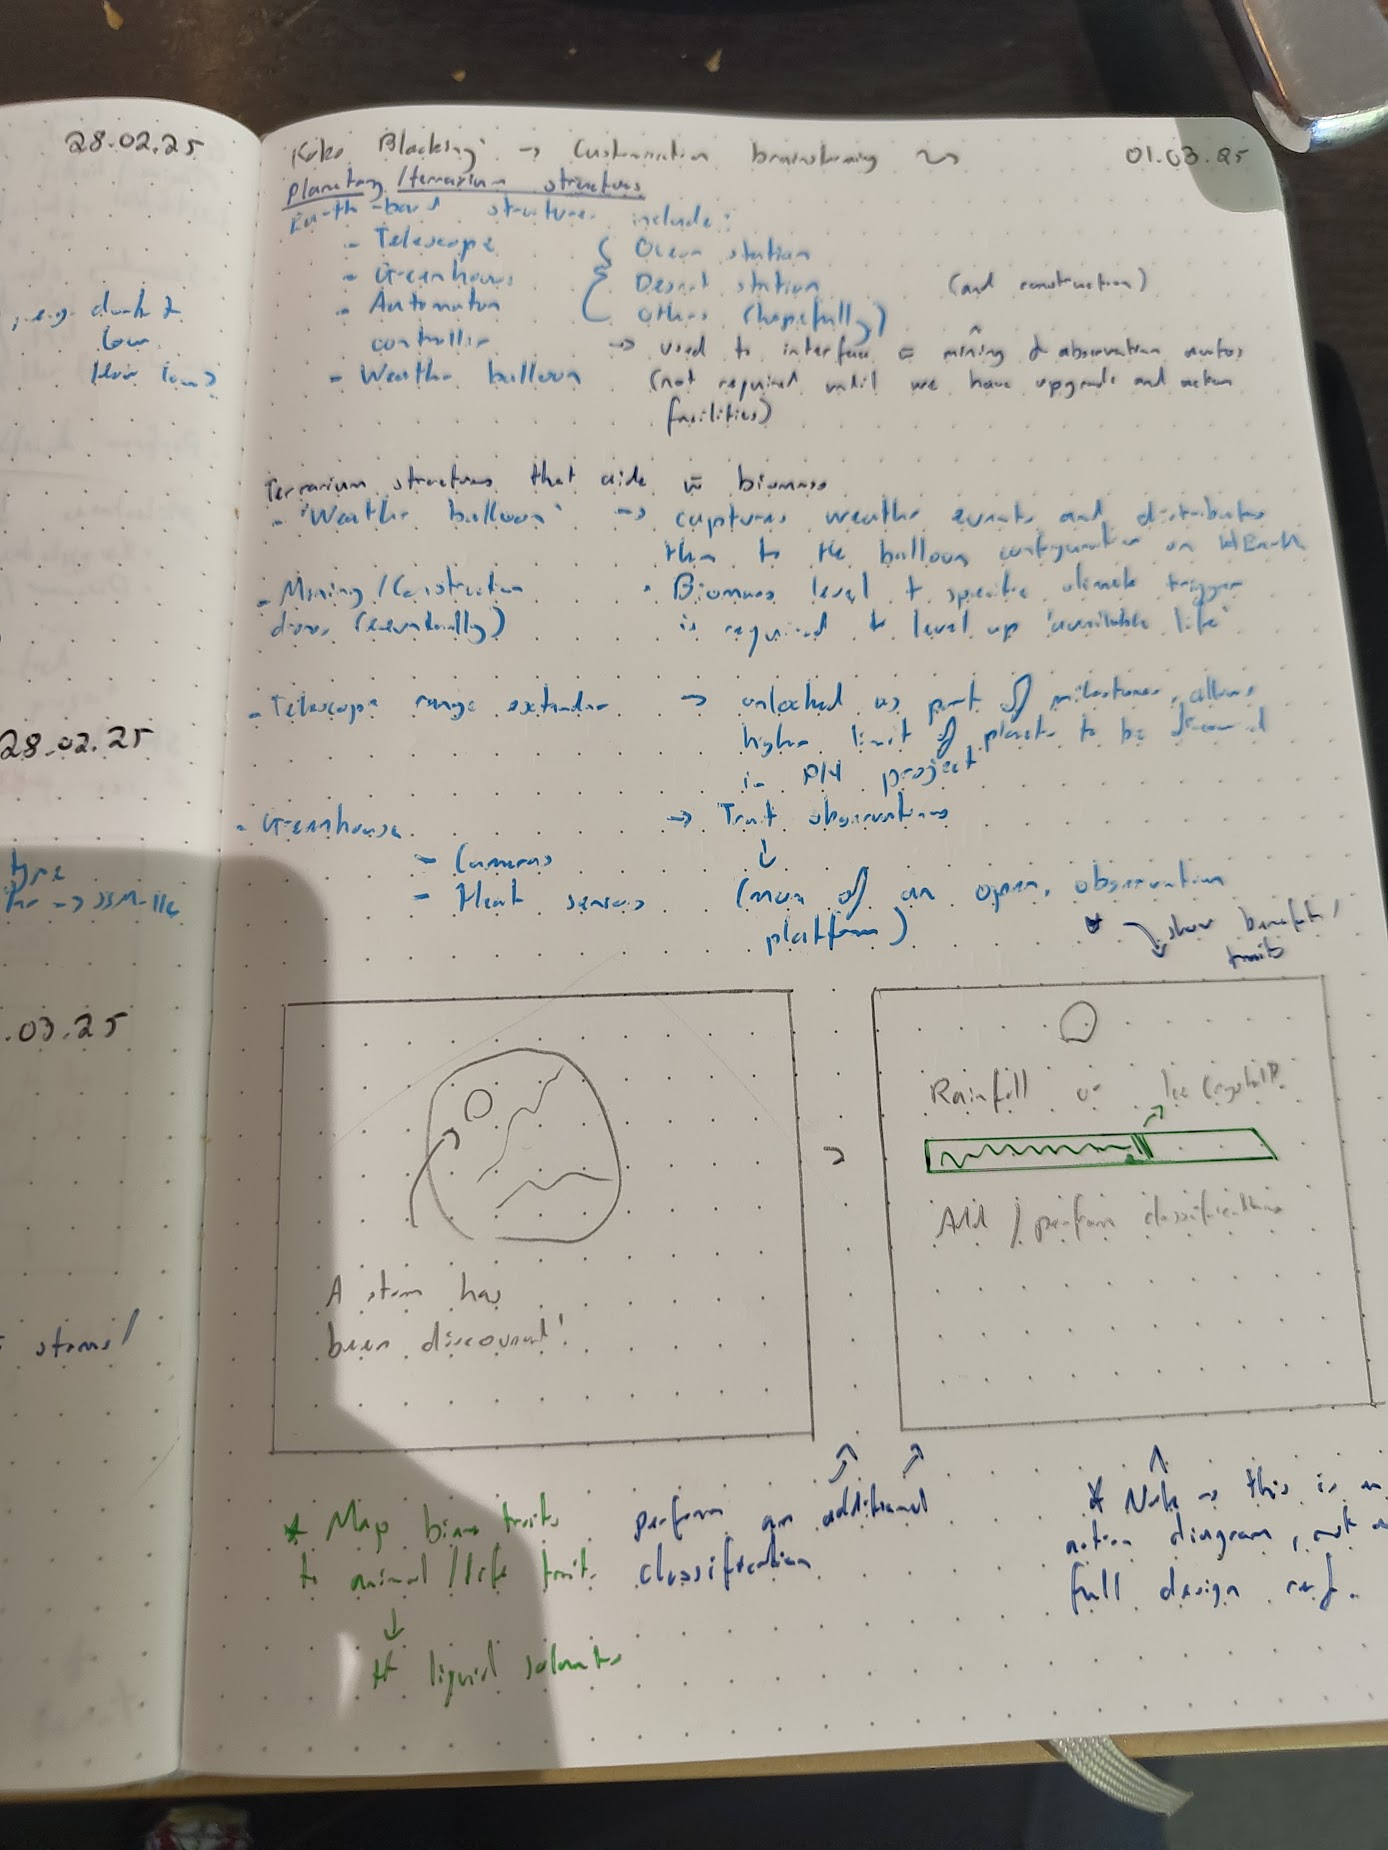 28.02.25
, e.g. dusk &
low
28.02.25
type
.03.25
storms!
Koko Blacking → customisation brainstorming
01.03.25
Planetary / terrarium structures
Earth-based structures include:
- Telescope
- Greenhouse
- Automaton
controller
- Weather balloon
Ocean station
Desert station
Others (hopefully)
(and construction)
→ used to interface = mining & observation autos
(not required until we have upgrade and action
facilities)
Terrarium structures that aide = biomass
- 'Weather balloon' → captures weather events and distributes
them to the balloon configuration on
- Mining / Construction
drones (eventually)
• Biomass level + specific climate trigger
is required to level up 'available life'
- Telescope range extender → unlocked as part of milestones, allows
higher limit of planets to be discovered
in PH project
- Greenhouse
- Cameras
- Heat sensors
→ Trait observations
↓
(more of an open, observation
platform)
* show benefits /
traits
A storm has
been discovered!
Rainfall or Ice Crystal?
Add / perform classifications
* Map biome traits
to animal / life traits
↓
liquid solvents
perform an additional
classification
* Note → this is an
action diagram, not a
full design ref.